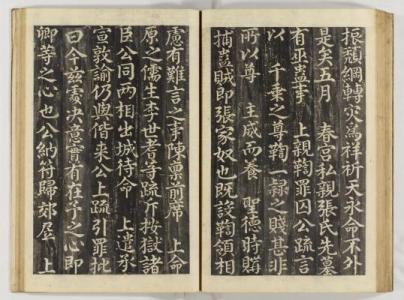 振頹綱轉災爲祥祈天永命不外
是矣五月 春宮私親張氏先墓
有巫蠱事 上親鞫罪囚公疏言
以 千乘之尊鞫一隷之賤甚非
所以尊 主威而養 聖德時購
捕蠱賊卽張家奴也旣設鞫領相
慮有難言之事陳稟前席 上命
原之儒生李世耉等疏斥按獄諸
臣公同兩相出城待命 上遣承
宣敦諭仍與偕來公上疏引罪批
曰今玆處决意實有在予之心卽
卿等之心也公納符歸郊屋 上